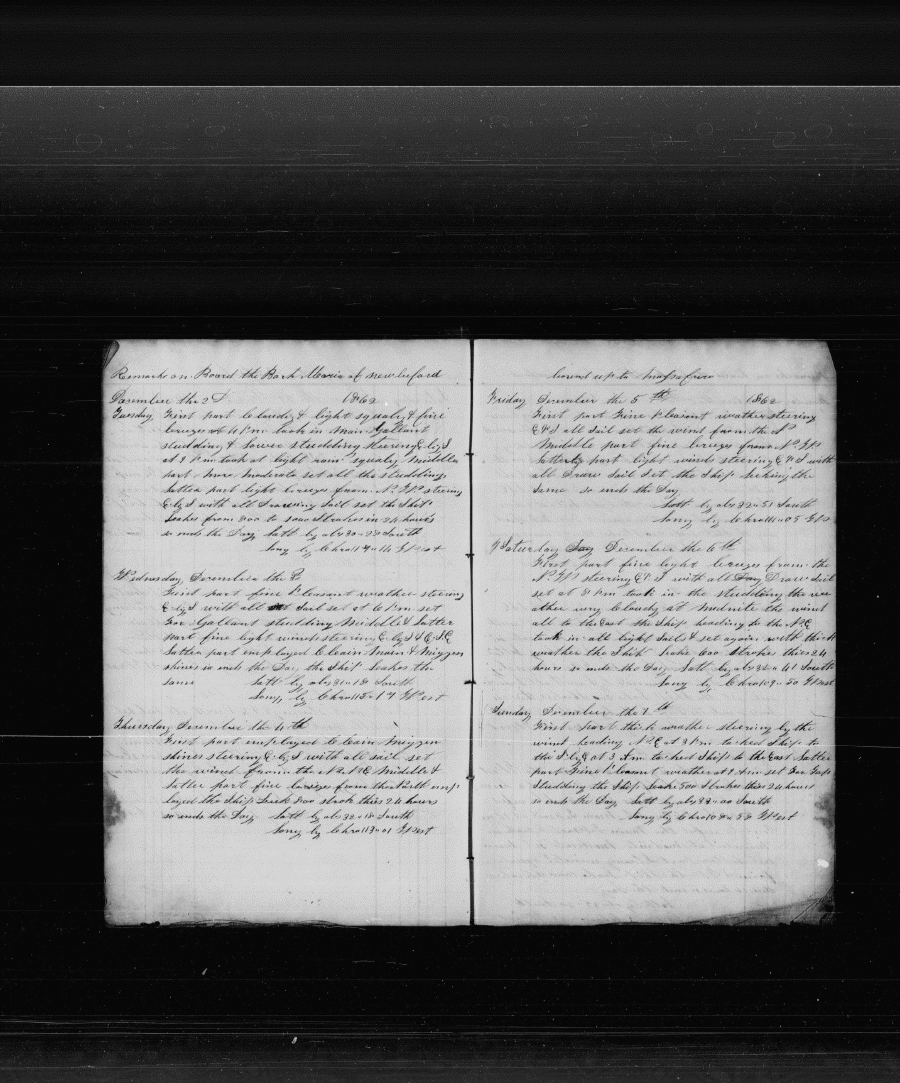 Remarks on Board the Bark Maria of new beford
December the 2d 1862
Tuesday First part Cloudy & light squaly & fine
breeze at 4 Pm took in Main Gallant
studding & lower studding steering E by S
at 8 Pm took at light rain squaly Middle
part More Moderate set all the studding
latter part light breeze from N.W. steering
E by S with all Drawing Sail set the Ship
leakes from 800 to 1000 Strokes in 24 hours
so ends the Day Latt by obs 30 = 28 South
Long by Chro 117 = 14 West
Wednesday December the 3
First part fine Pleasant weather steering
E by S with all Sail set at 6 Pm set
For Gallant studding Middle & Latter
part fine light winds steering E by S & E S E
Latter part employed Cleain Main & Mizzen
shines so ends the Day the Ship leakes the
same Latt by obs 31 = 18 South
Long by Chro 115 = 17 West
Thursday December the 4th
First part employed Cleain Mizzen
shines steering E by S with all sail set
the wind from the N.N.E Middle &
Latter part fine breezes from the North emp
loyed the Ship Leak 800 strok thies 24 hours
so ends the Day Latt by obs 32 = 18 South
Long by Chro 113 = 01 West
bound up to
Friday December the 5th 1862
First part Fine Pleasant weather steering
E & S all sail set the wind from the N
Middle part fine breezes from N.W
Latter part light winds steering E & S with
all Draw Sail Set the Ship Leeking the
same so ends the Day
Latt by obs 32 = 51 South
Long by Chro 111 = 05 W
Saturday Day December the 6th
First part fine light breeze from the
N.W steering E & S with all Day Draw Sail
set at 8 Pm took in the studding the we
ather very Cloudy at Midnite the wind
all to the East the Ship heading to the N.E
took in all light Sails & set again with thick
weather the Ship Leake 600 Strokes thies 24
hours so ends the Day Latt by obs 32 = 41 South
Long by Chro 109 = 50 West
Sunday December the 7th
First part thick weather steering by the
wind heading N.E at 3 Pm tacked Ship to
the S by E at 3 Am tacked Ship to the East Latter
part Fine Pleasant weather at 7 Am set For Top
Studding the Ship Leake 500 Strokes thies 24 hours
so ends the Day Latt by obs 33 = 00 South
Long by Chro 108 = 58 West